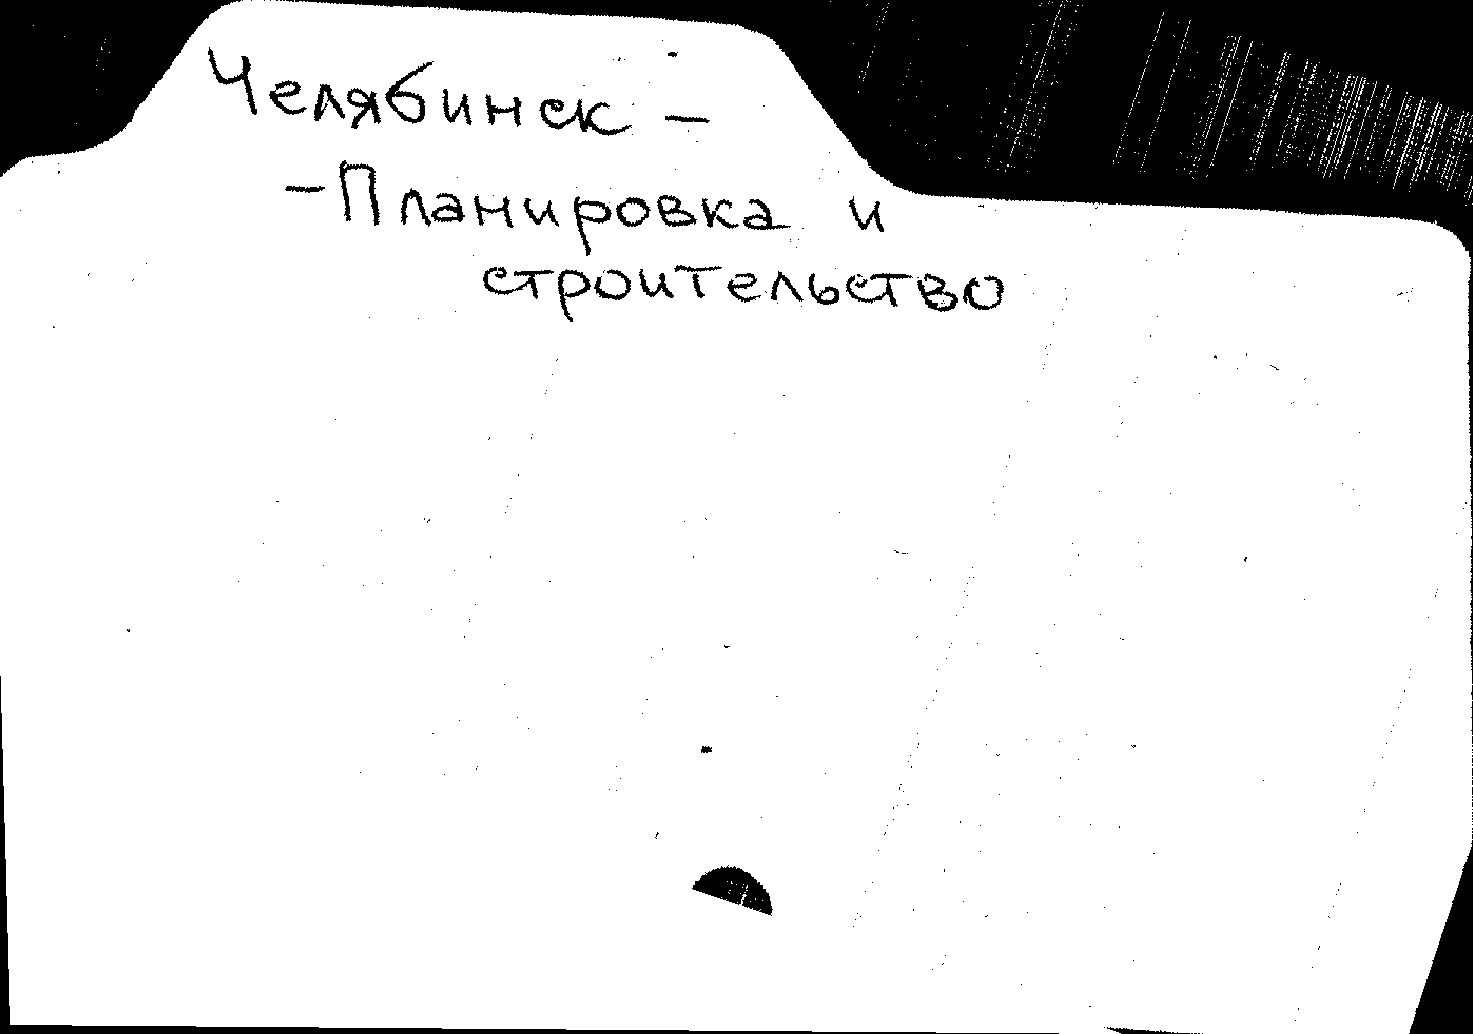 Челябинск –
– Планировка и
строительство